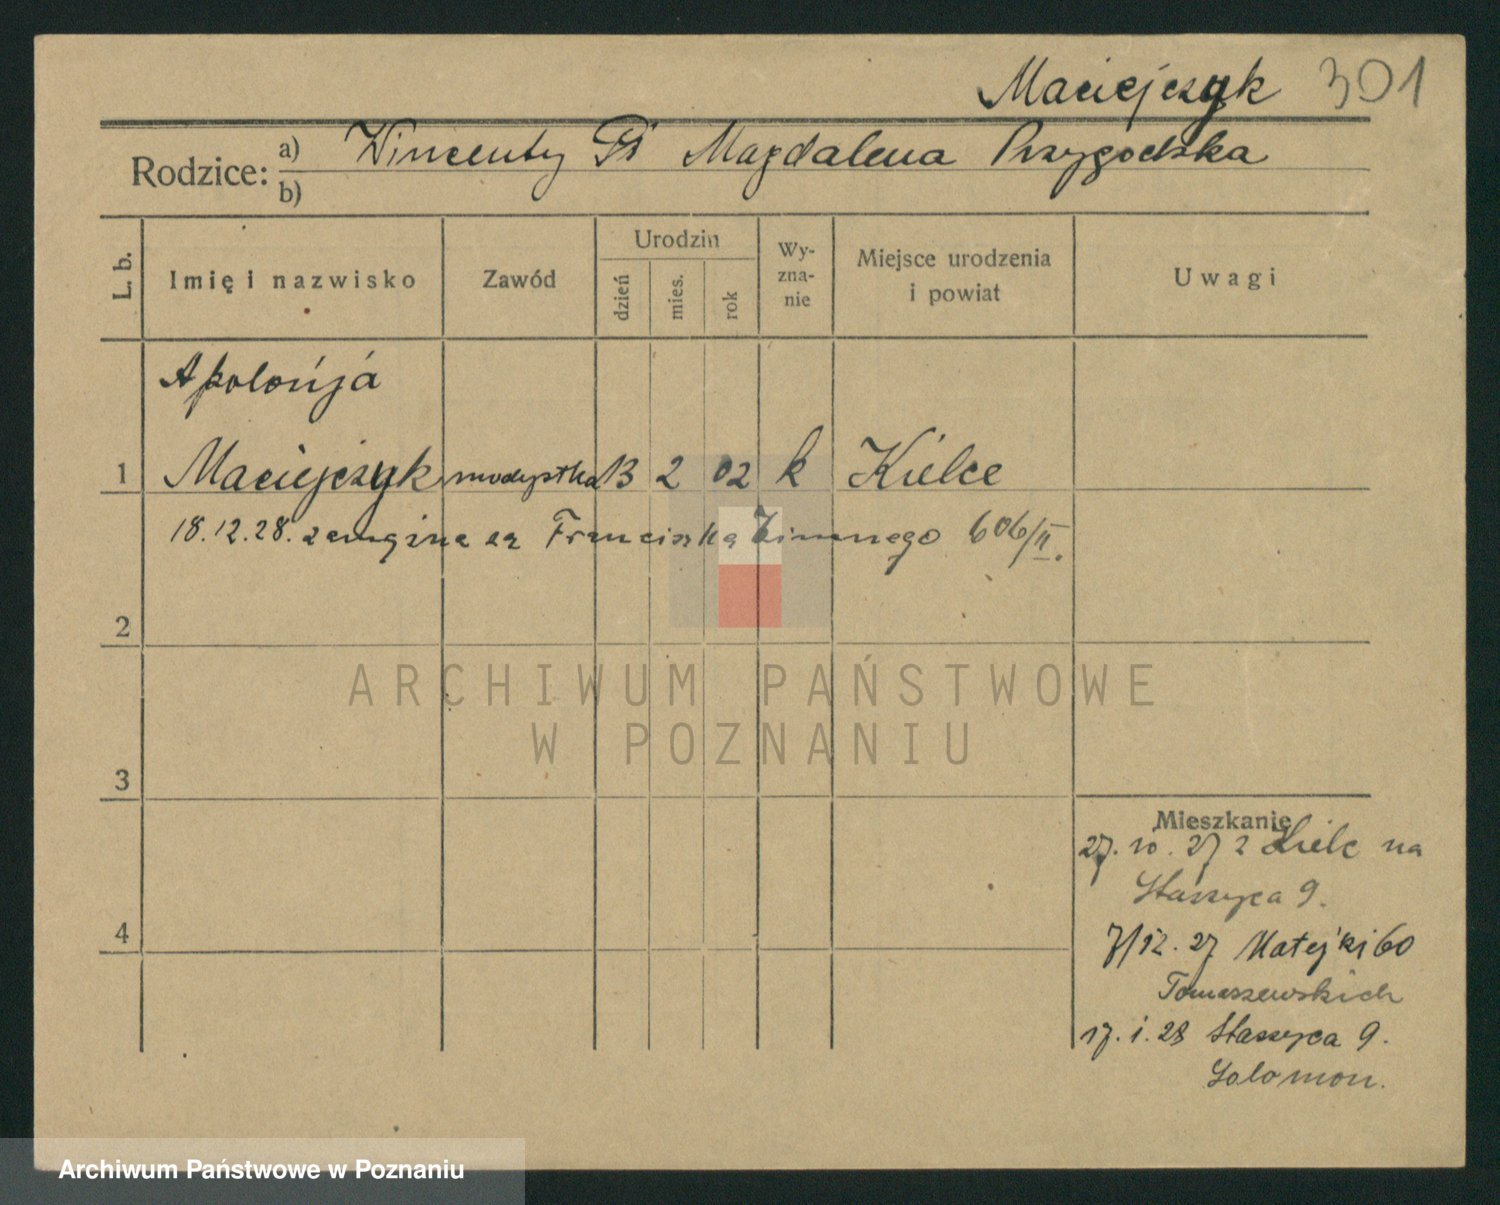 Maciejczyk 301
Rodzice: a) Wincenty Magdalena Przygodzka
b)
L. b. Imię i nazwisko Zawód Urodzin dzień mies. rok Wy-zna-nie Miejsce urodzenia i powiat Uwagi
Apolońja
1 Maciejczyk modystka 13 2 02 k Kielce
18.12.28. zamężna za Franciszka Zimnego 606/II.
2
ARCHIWUM PAŃSTWOWE
W POZNANIU
3
Mieszkanie
27. 10. 27 z Kielc na
Staszyca 9.
4
7/12. 27 Matejki 60
Tomaszewskich
17. i. 28 Staszyca 9.
Solomon.
Archiwum Państwowe w Poznaniu